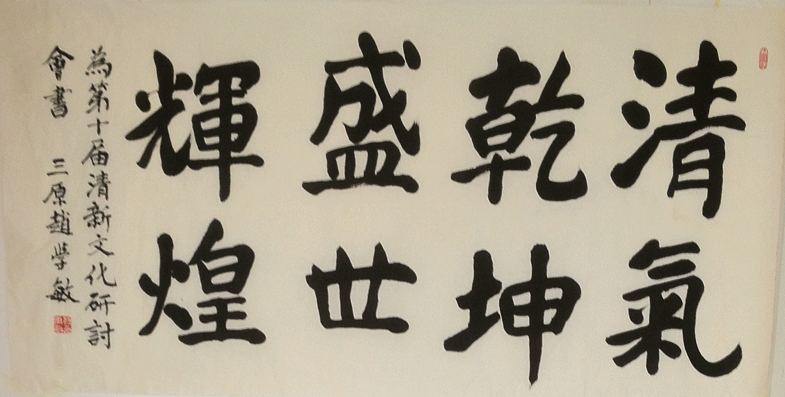 清氣
乾坤
盛世
輝煌
為第十届清新文化研討
會書 三原趙学敏